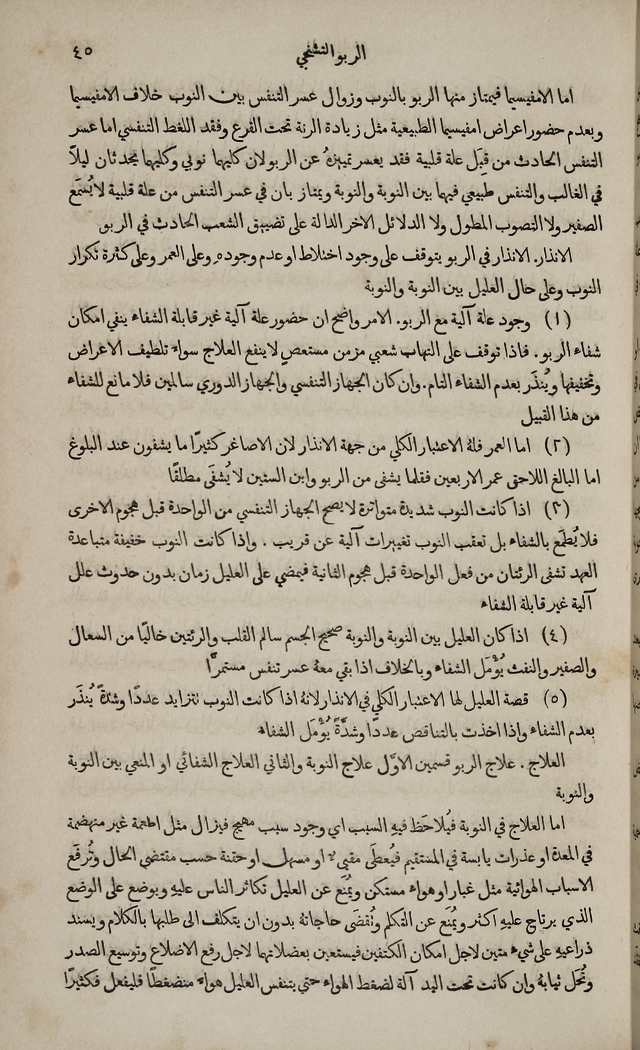 الربو التشنجي ٤٥
اما الامفيسيما فيمتاز منها الربو بالنوب وزوال عسر التنفس بين النوب خلاف الامفيسيما
وبعدم حضور اعراض امفيسيما الطبيعية مثل زيادة الرنة تحت القرع وفقد اللغط التنفسي اما عسر
التنفس الحادث من قِبَل علة قلبية فقد يعسر تمييزهُ عن الربو لان كليهما نوبي وكليهما يحدثان ليلاً
في الغالب والتنفس طبيعي فيها بين النوبة والنوبة ويمتاز بان في عسر التنفس من علة قلبية لا يُسمَع
الصفير ولا التصوب المطول ولا الدلائل الاخر الدالة على تضييق الشعب الحادث في الربو
الانذار. الانذار في الربو يتوقف على وجود اختلاط او عدم وجوده وعلى العمر وعلى كثرة تكرار
النوب وعلى حال العليل بين النوبة والنوبة
(١) وجود علة آلية مع الربو. الامر واضح ان حضور علة آلية غير قابلة الشفاء ينفي امكان
شفاء الربو. فاذا توقف على التهاب شعبي مزمن مستعصٍ لا ينفع العلاج سواء تلطيف الاعراض
وتخفيفها ويُنذَر بعدم الشفاء التام. وان كان الجهاز التنفسي والجهاز الدوري سالمين فلا مانع للشفاء
من هذا القبيل
(٢) اما العمر فلهُ الاعتبار الكلي من جهة الانذار لان الاصاغر كثيرًا ما يشفون عند البلوغ
اما البالغ اللاحق عمر الاربعين فقلما يشفى من الربو وابن الستين لا يُشفَى مطلقًا
(٣) اذا كانت النوب شديدة متواترة لا يصح الجهاز التنفسي من الواحدة قبل هجوم الاخرى
فلا يُطمَع بالشفاء بل تعقب النوب تغييرات آلية عن قريب. واذا كانت النوب خفيفة متباعدة
العهد تشفى الرئتان من فعل الواحدة قبل هجوم الثانية فيمضي على العليل زمان بدون حدوث علل
آلية غير قابلة الشفاء
(٤) اذا كان العليل بين النوبة والنوبة صحيح الجسم سالم القلب والرئتين خاليًا من السعال
والصفير والنفث يُؤْمَل الشفاء وبالخلاف اذا بقي معهُ عسر تنفس مستمرًّا
(٥) قصة العليل لها الاعتبار الكلي في الانذار لانهُ اذا كانت النوب تتزايد عددًا وشدَّةً يُنذَر
بعدم الشفاء واذا اخذت بالتناقص عددًا وشدَّةً يُؤْمَل الشفاء
العلاج. علاج الربو قسمين الاوَّل علاج النوبة والثاني العلاج الشفائي او المنعي بين النوبة
والنوبة
اما العلاج في النوبة فيُلاحَظ فيهِ السبب اي وجود سبب مهيج فيزال مثل اطعمة غير منهضمة
في المعدة او عذرات يابسة في المستقيم فيُعطَى مقيء او مسهل او حقنة حسب مقتضى الحال وتُرفَع
الاسباب الهوائية مثل غبار او هواء مستكن ويُمنَع عن العليل تكاثر الناس عليهِ ويوضع على الوضع
الذي يرتاح عليهِ اكثر ويُمنَع عن التكلم وتُقضَى حاجاتهُ بدون ان يتكلف الى طلبها بالكلام ويسند
ذراعيهِ على شيء متين لاجل امكان الكتفين فيستعين بعضلاتهما لاجل رفع الاضلاع وتوسيع الصدر
وتُحَل ثيابهُ وان كانت تحت اليد آلة لضغط الهواء حتى يتنفس العليل هواء منضغطًا فليفعل فكثيرًا